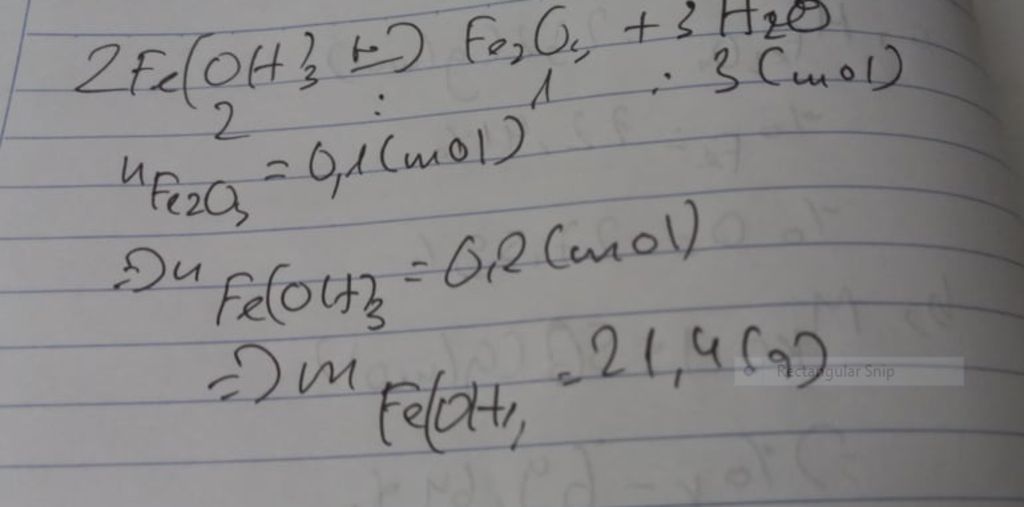 2Fe(OH)3 t→ Fe2O3 + 3H2O
2 : 1 : 3 (mol)
nFe2O3 = 0,1 (mol)
=> nFe(OH)3 = 0,2 (mol)
=> mFe(OH)3 = 21,4 (g)
Rectangular Snip